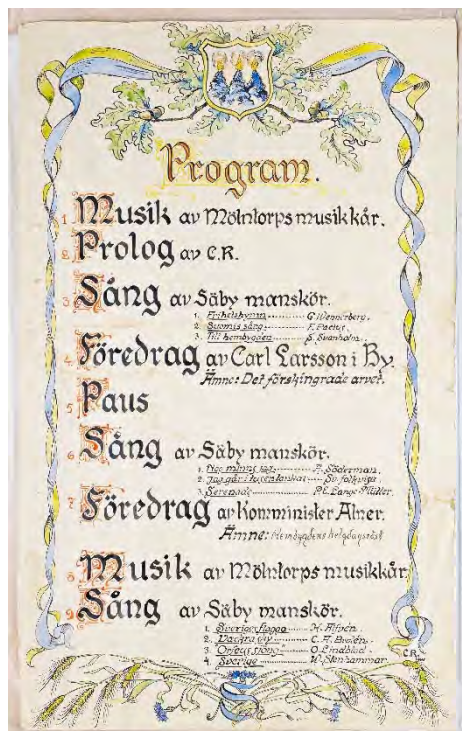 Program.
1. Musik av Mölntorps musikkår.
2. Prolog av C.R.
3. Sång av Säby manskör.
1. Frihetshymn G. Wennerberg.
2. Suomis sång F. Pacius.
3. Till hembygden S. Svanholm.
4. Föredrag av Carl Larsson i By.
Ämne: Det förskingrade arvet.
5. Paus
6. Sång av Säby manskör.
1. Nog minns jag A. Söderman.
2. Jag går i tusen tankar Sv. folkvisa
3. Serenad P.E. Lange-Müller.
7. Föredrag av Komminister Alner.
Ämne: Hembygdens helgdagsröst
8. Musik av Mölntorps musikkår
9. Sång av Säby manskör.
1. Sveriges flagga H. Alfvén.
2. Vackra sky C. A. Budén.
3. "Orfeus sjöng" O. Lindblad.
4. Sverige W. Stenhammar.
C.R.